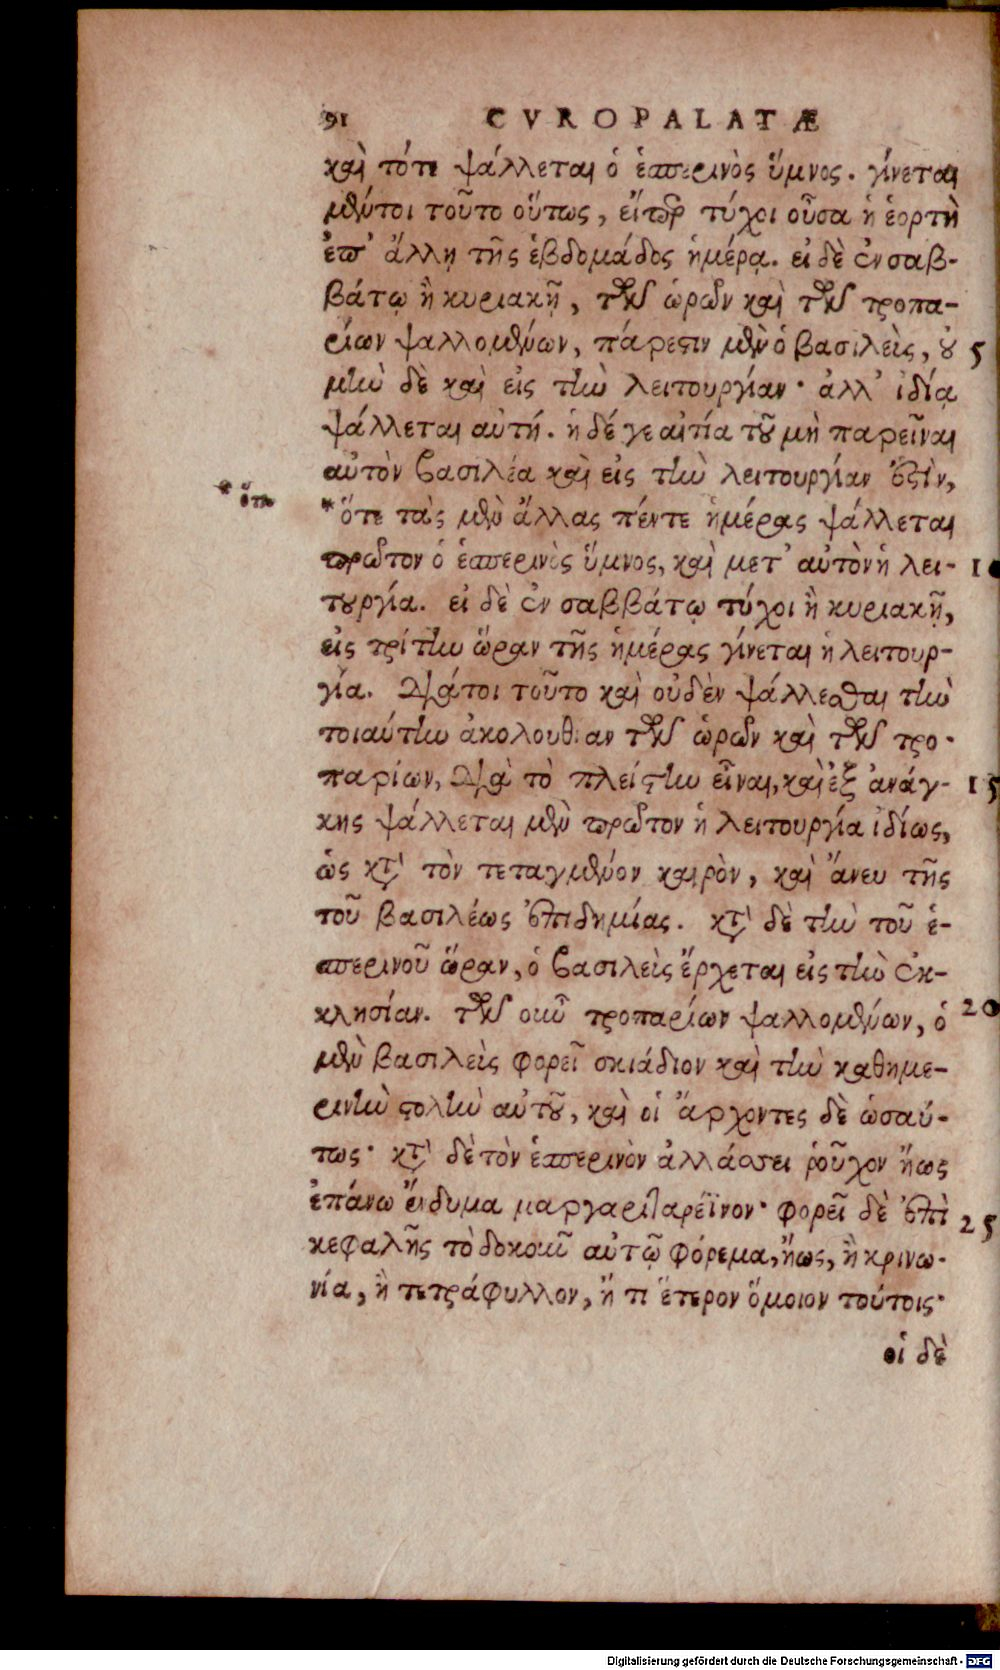 91 CVROPALATÆ
καὶ τότε ψάλλεται ὁ ἑσπερινὸς ὕμνος. γίνεται
μέντοι τοῦτο οὕτως, εἴπερ τύχοι οὖσα ἡ ἑορτὴ
ἐπ' ἄλλῃ τῆς ἑβδομάδος ἡμέρᾳ. εἰ δὲ ἐν σαβ-
βάτῳ ἢ κυριακῇ, τῶν ὡρῶν καὶ τῶν τροπα-
ρίων ψαλλομένων, πάρεστιν μὲν ὁ βασιλεὺς, οὐ 5
μὴν δὲ καὶ εἰς τὴν λειτουργίαν· ἀλλ' ἰδίᾳ
ψάλλεται αὐτή. ἡ δέ γε αἰτία τοῦ μὴ παρεῖναι
αὐτὸν βασιλέα καὶ εἰς τὴν λειτουργίαν ἐστὶν,
* ὅτι
*ὅτε τὰς μὲν ἄλλας πέντε ἡμέρας ψάλλεται
πρῶτον ὁ ἑσπερινὸς ὕμνος, καὶ μετ' αὐτὸν ἡ λει- 10
τουργία. εἰ δὲ ἐν σαββάτῳ τύχοι ἢ κυριακῇ,
εἰς τρίτην ὥραν τῆς ἡμέρας γίνεται ἡ λειτουρ-
γία. διάτοι τοῦτο καὶ οὐδὲν ψάλλεσθαι τὴν
τοιαύτην ἀκολουθίαν τῶν ὡρῶν καὶ τῶν τρο-
παρίων, διὰ τὸ πλείστην εἶναι, καὶ ἐξ ἀνάγ- 15
κης ψάλλεται μὲν πρῶτον ἡ λειτουργία ἰδίως,
ὡς κατὰ τὸν τεταγμένον καιρὸν, καὶ ἄνευ τῆς
τοῦ βασιλέως ἐπιδημίας. κατὰ δὲ τὴν τοῦ ἑ-
σπερινοῦ ὥραν, ὁ βασιλεὺς ἔρχεται εἰς τὴν ἐκ-
κλησίαν. τῶν οὖν τροπαρίων ψαλλομένων, ὁ 20
μὲν βασιλεὺς φορεῖ σκιάδιον καὶ τὴν καθημε-
ρινὴν στολὴν αὐτοῦ, καὶ οἱ ἄρχοντες δὲ ὡσαύ-
τως· κατὰ δὲ τὸν ἑσπερινὸν ἀλλάσσει ῥοῦχον ἤως
ἐπάνω ἔνδυμα μαργαριταρέϊνον· φορεῖ δὲ ἐπὶ
κεφαλῆς τὸ δοκοῦν αὐτῷ φόρεμα, ἤως, ἢ κρινω- 25
νία, ἢ τετράφυλλον, ἤ τι ἕτερον ὅμοιον τούτοις·
οἱ δὲ
Digitalisierung gefördert durch die Deutsche Forschungsgemeinschaft - DFG